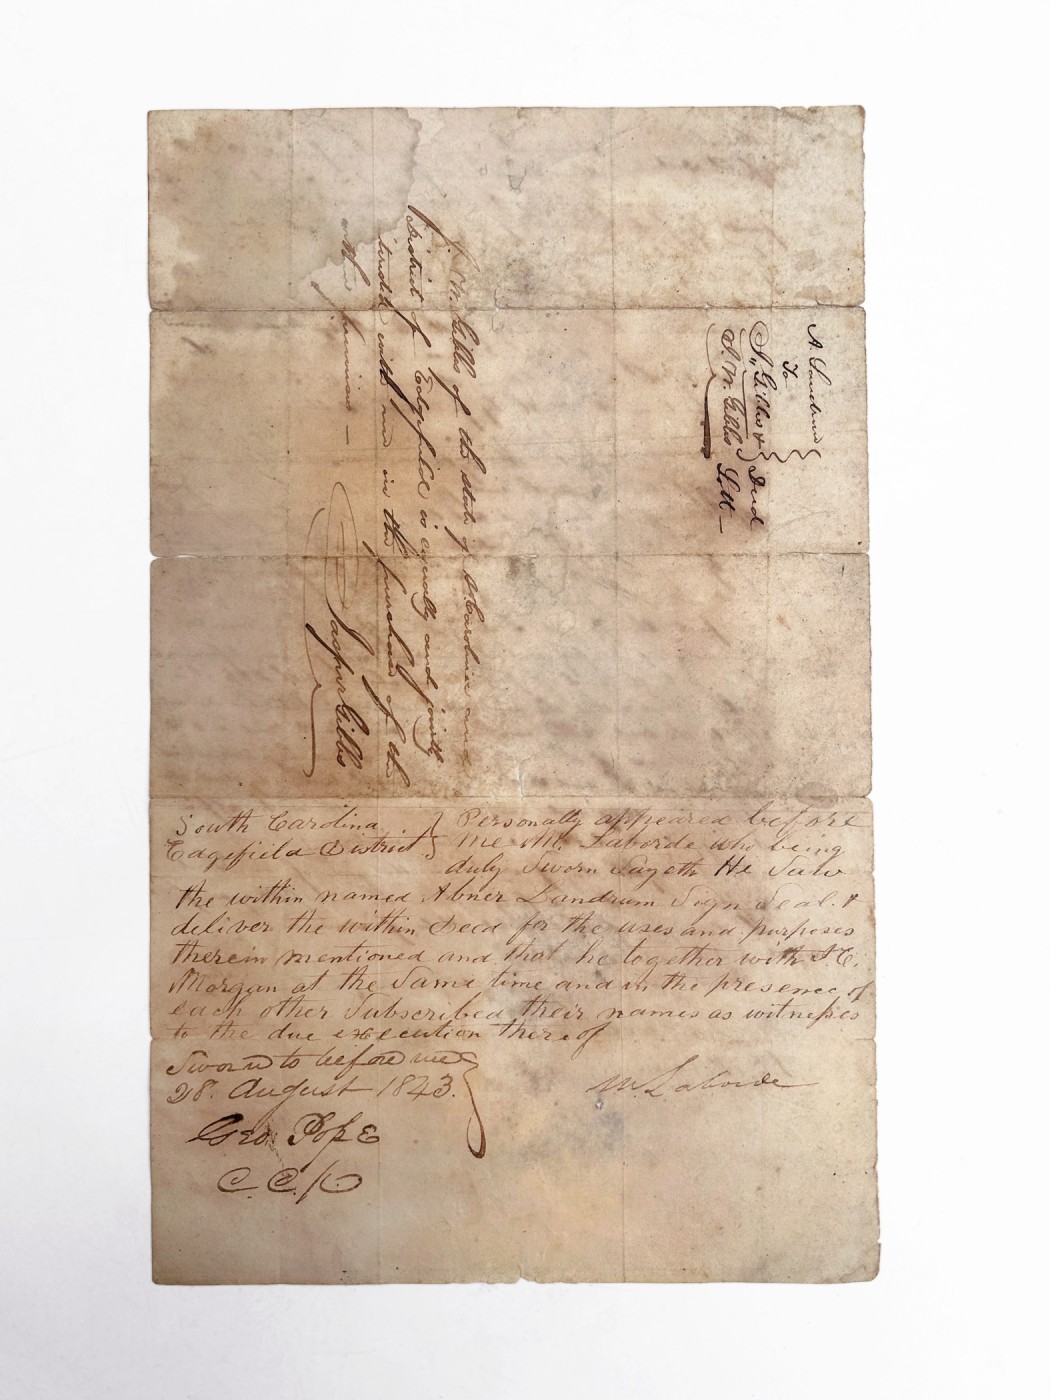 A. Landrum
To
J. Gibbs & } Deed
S. W. Gibbs } Lott —
S. W. Gibbs of the state of S. Carolina and
District of Edgefield is equally and jointly
intrested with me in the purchase of the
within premises —
Jasper Gibbs
South Carolina } Personally appeared before
Edgefield District } me M. Laborde who being
duly Sworn Sayeth He Saw
the within named Abner Landrum Sign Seal &
deliver the within Deed for the uses and purposes
therein mentioned and that he together with J. C.
Morgan at the Same time and in the presence of
each other Subscribed their names as witnesses
to the due execution there of
Sworn to before me }
28. August 1843. }
M. Laborde
Geo. Pope
C. C. P.